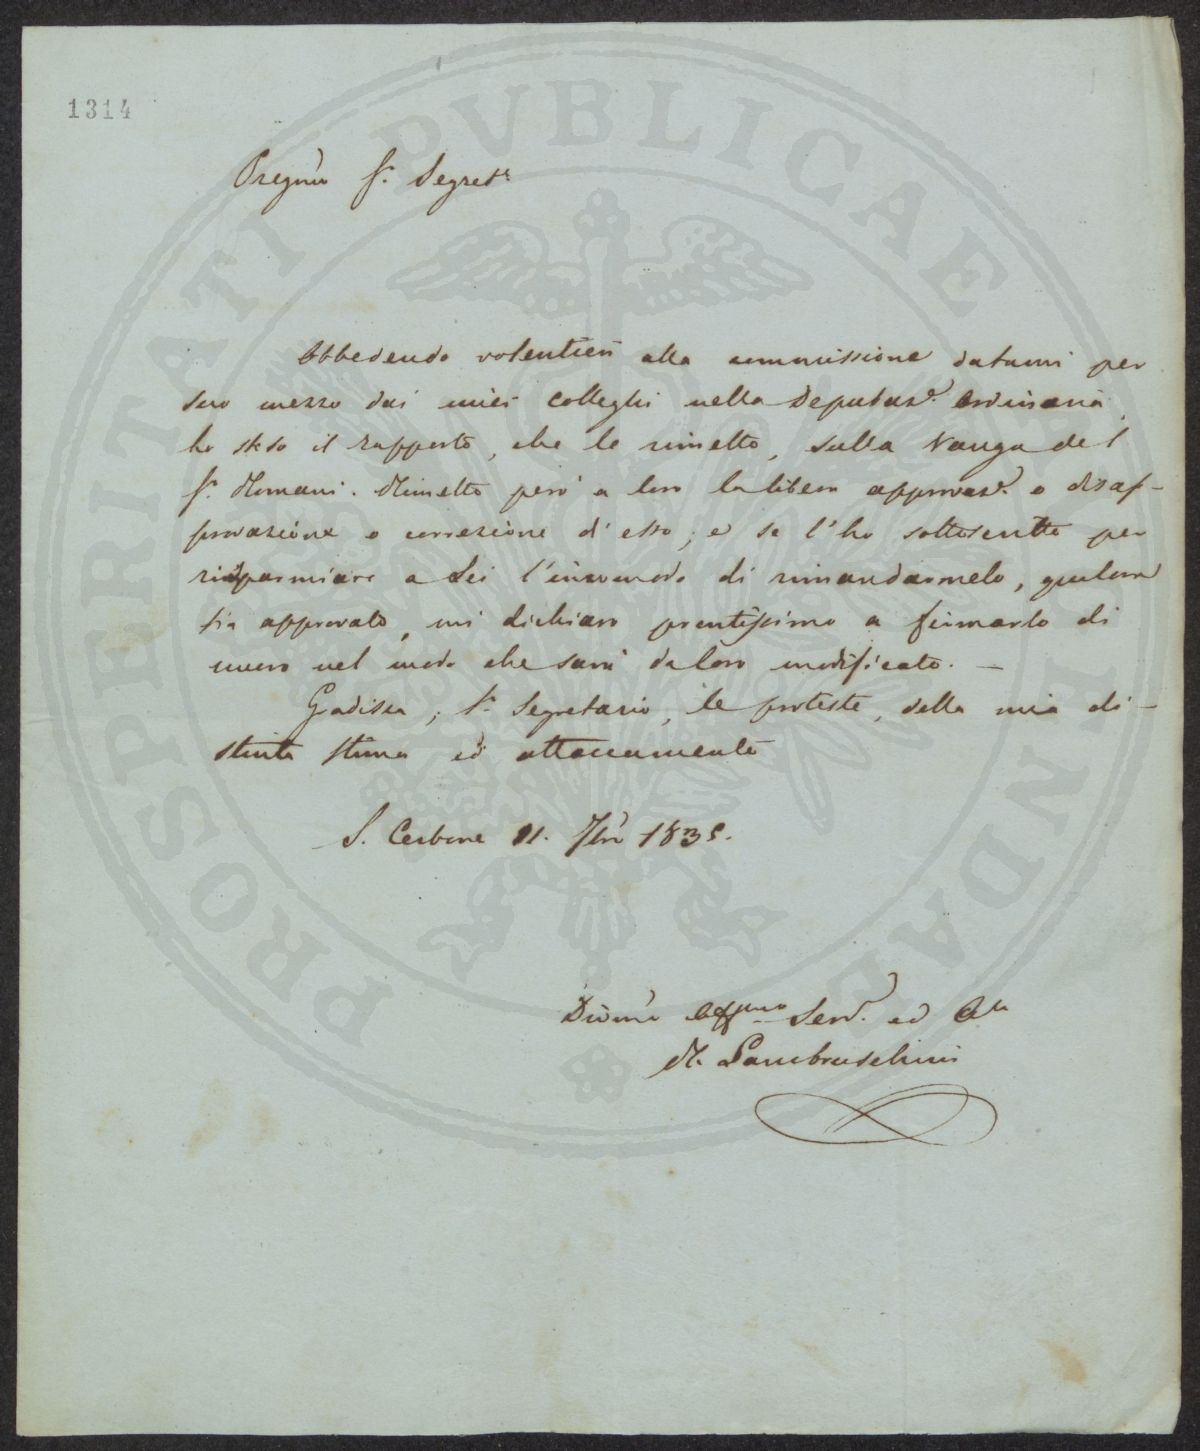 1314
Pregmo Sr. Segret.
Obbedendo volentieri alla commissione datami per
suo mezzo dai miei Colleghi nella Deputaz.e Ordinaria,
ho steso il rapporto, che le rimetto, sulla Vanga del
Sr. Romani. Rimetto però a loro la libera approvaz.e o disap-
provazione o correzione d'esso; e se l'ho sottoscritto per
risparmiare a Lei l'incomodo di rimandarmelo, qualora
sia approvato, mi dichiaro prontissimo a firmarlo di
nuovo nel modo che sarà da loro modificato. —
Gradisca, Sr. Segretario, le proteste, della mia di-
stinta stima ed attaccamento
S. Cerbone 11. 7bre 1835.
Devmo Affmo Serv.e ed A
R. Lambruschini
PROSPERITATI PVBLICAE AVGENDAE